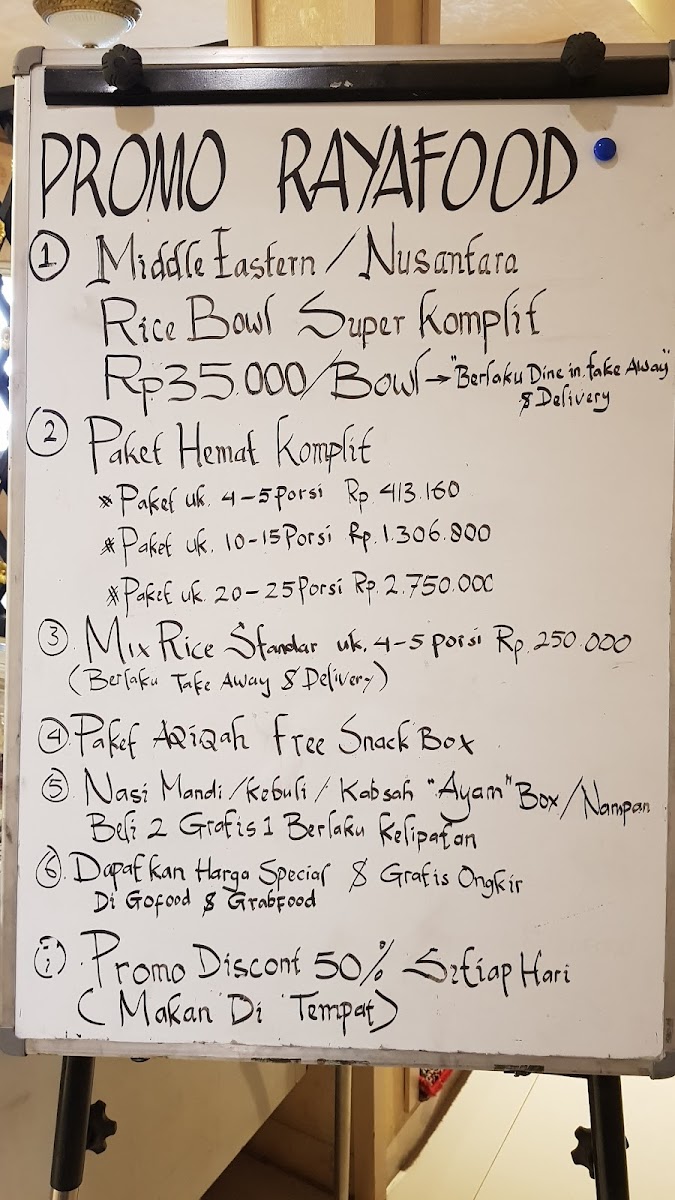 PROMO RAYAFOOD
① Middle Eastern / Nusantara
Rice Bowl Super Komplit
Rp35.000/Bowl → "Berlaku Dine in. take Away"
& Delivery
② Paket Hemat Komplit
* Paket uk. 4-5 Porsi Rp. 413.160
* Paket uk. 10-15 Porsi Rp. 1.306.800
* Paket uk. 20-25 Porsi Rp. 2.750.000
③ Mix Rice Standar uk. 4-5 porsi Rp. 250.000
(Berlaku Take Away & Delivery)
④. Paket AQiQah Free Snack Box
⑤ Nasi Mandi / Kebuli / Kabsah "Ayam" Box / Nampan
Beli 2 Gratis 1 Berlaku Kelipatan
⑥. Dapatkan Harga Special & Gratis Ongkir
Di Gofood & Grabfood
(i) Promo Discont 50% Setiap Hari
(Makan Di Tempat)